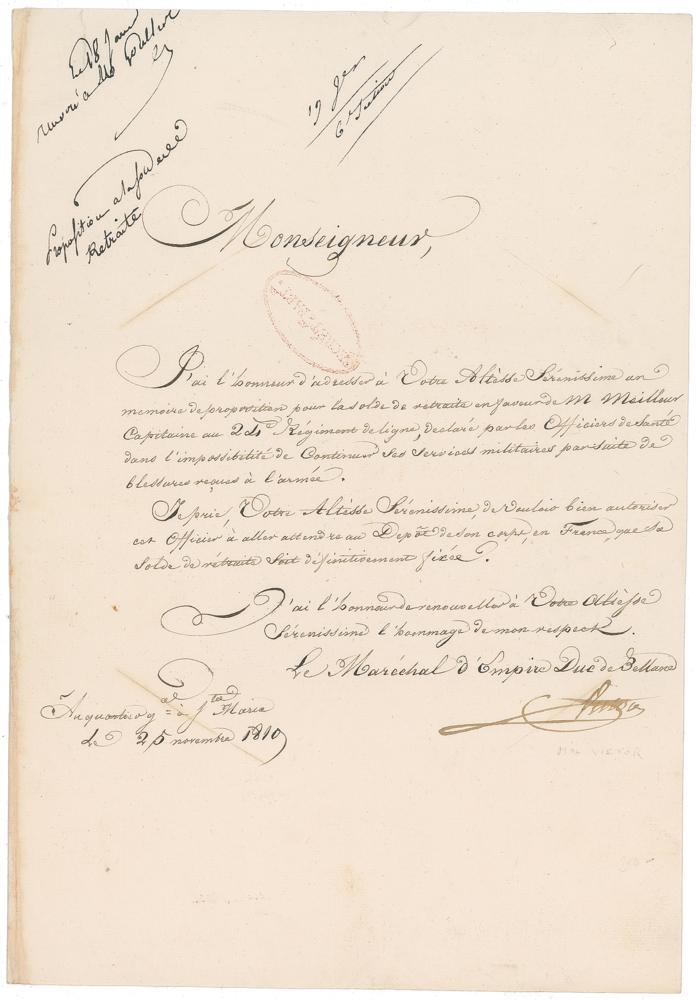 Le 18 Janv
renvoyé à Mr
19 Jer
6e Section
Proposition à la solde de
Retraite
Monseigneur,
J'ai l'honneur d'adresser à Votre Altèsse Sérénissime un
mémoire de proposition pour la solde de retraite en faveur de M Meilleur
Capitaine au 24e Régiment de ligne, déclaré par les Officiers de Santé
dans l'impossibilité de Continuer Ses Services militaires par suite de
blessures reçues à l'armée.
Je prie Votre Altèsse Sérénissime, de vouloir bien autoriser
cet Officier à aller attendre au Depôt de son corps, en France, que sa
Solde de rétraite Soit définitivement fixée.
J'ai l'honneur de renouveller à Votre Altèsse
Sérénissime l'hommage de mon respect.
Le Maréchal d'Empire Duc de Bellune
Au quartier gal = à Sta Maria
Le 25 novembre 1810
Mal VICTOR